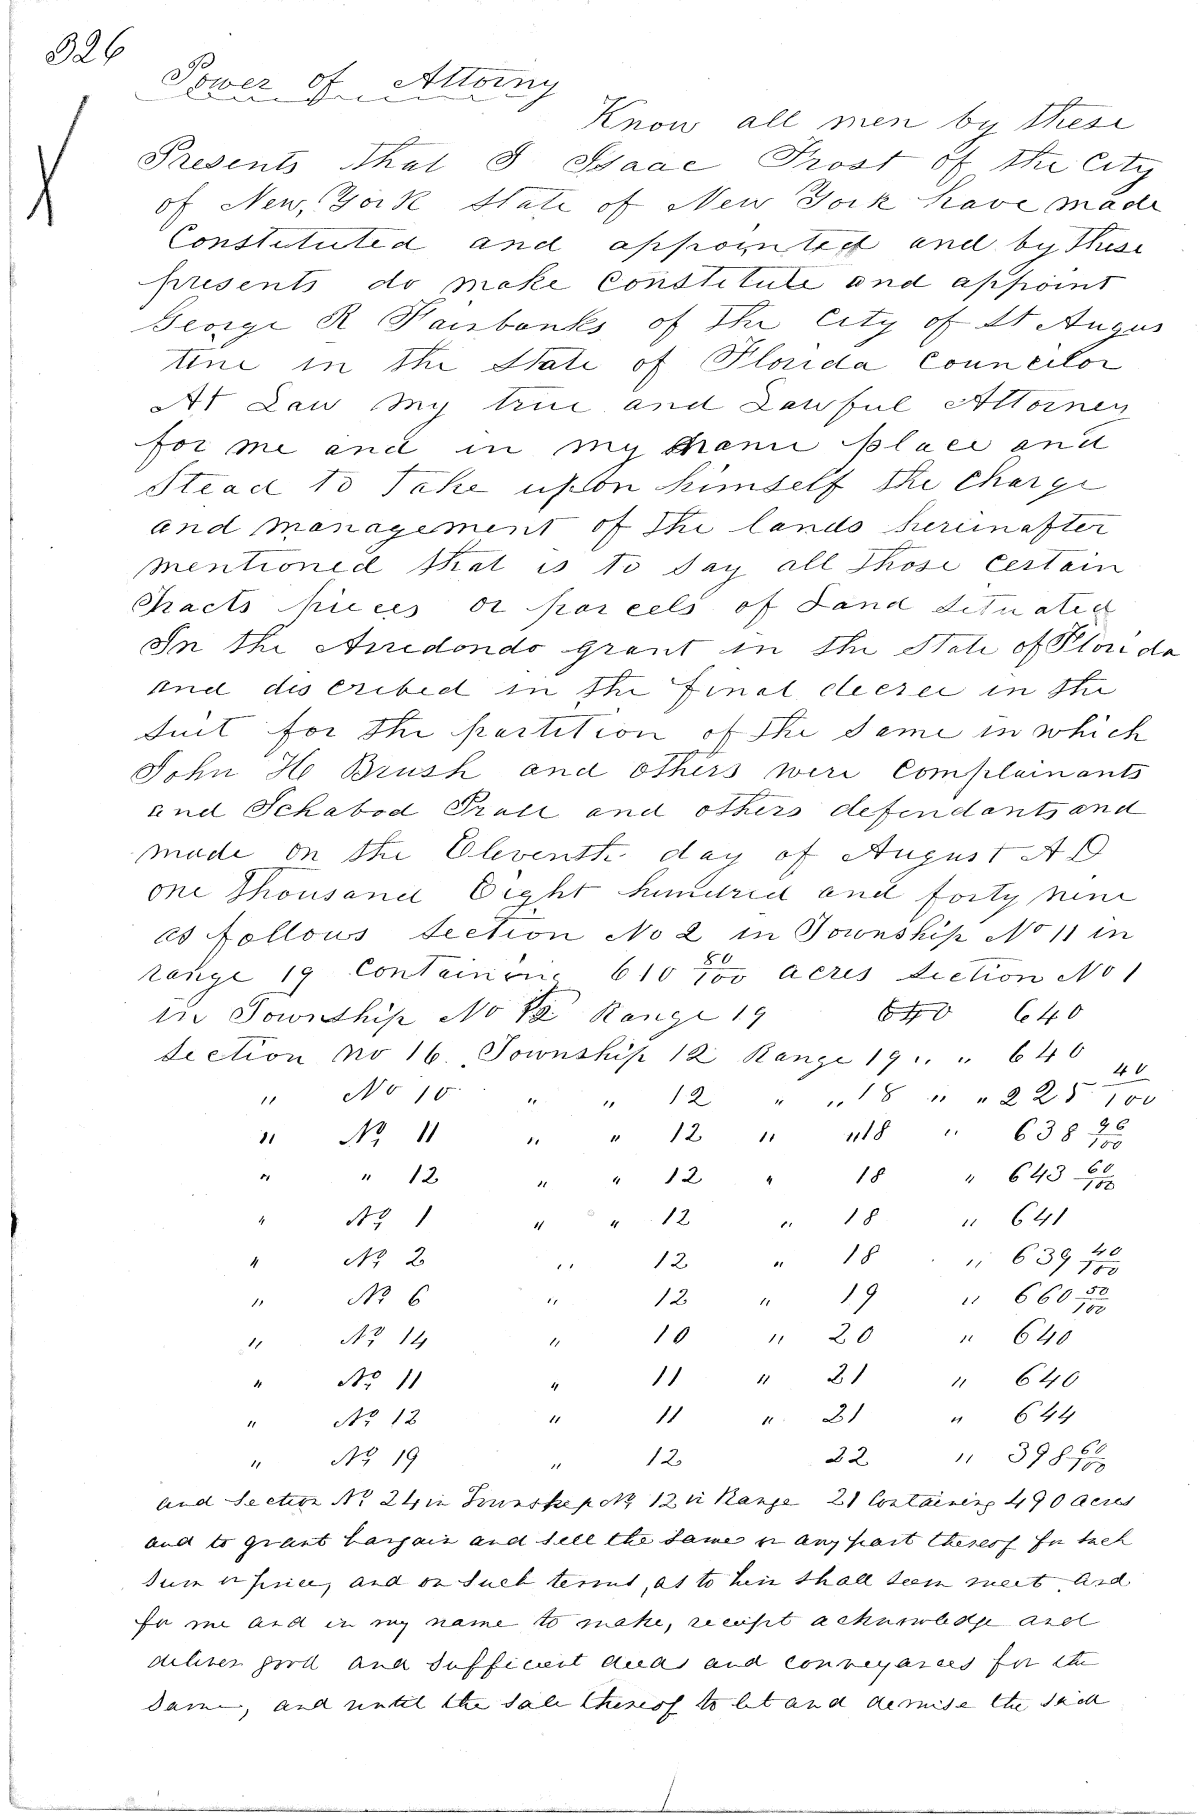 326
Power of Attorny
Know all men by these
Presents that I Isaac Frost of the City
of New, York State of New York have made
Constituted and appointed and by these
presents do make Constitute and appoint
George R Fairbanks of the City of St Augus
tine in the State of Florida Councilor
At Law My true and Lawful Attorney
for me and in my name place and
Stead to Take upon himself the Charge
and management of the lands hereinafter
mentioned that is to say all those certain
Tracts pieces or parcels of Land situated
In the Arredondo grant in the State of Florida
and discribed in the final decree in the
suit for the partition of the same in which
John H Brush and others were Complainants
and Ichabod Pratt and others defendants and
made on the Eleventh day of August A D
one Thousand Eight hundred and forty nine
as follows Section No 2 in Township No 11 in
range 19 Containing 610 80/100 acres Section No 1
in Township No 12 Range 19 640 640
Section no 16 Township 12 Range 19 " " 640
" No 10 " " 12 " " 18 " " 225 40/100
" No 11 " " 12 " " 18 " 638 96/100
" " 12 " " 12 " 18 " 643 60/100
" No 1 " " 12 " 18 " 641
" No 2 " 12 " 18 " 639 40/100
" No 6 " 12 " 19 " 660 50/100
" No 14 " 10 " 20 " 640
" No 11 " 11 " 21 " 640
" No 12 " 11 " 21 " 644
" No 19 " 12 22 " 398 60/100
and Section No 24 in Township No 12 in Range 21 Containing 490 acres
and to grant bargain and sell the same or any part thereof for such
sum or price, and on such terms, as to him shall seem meet and
for me and in my name to make, receipt acknowledge and
deliver good and sufficient deeds and conveyances for the
same, and until the sale thereof to let and demise the said